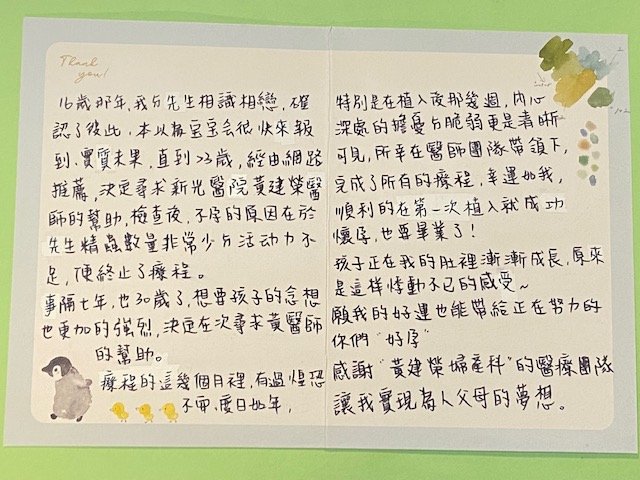 Thank
you!
16歲那年,我与先生相識相戀,確
認了彼此,本以為寶宝会很快來報
到,實質未果,直到23歲,經由網路
推薦,決定尋求新光醫院黃建榮醫
師的幫助,檢查後,不孕的原因在於
先生精蟲數量非常少与活动力不
足,便終止了療程。
事隔七年,也30歲了,想要孩子的念想
也更加的強烈,決定在次尋求黃醫師
的幫助。
療程的這幾個月裡,有過惶恐
不而,度日如年,
特別是在植入後那幾週,內心
深處的擔憂与脆弱更是清晰
可見,所幸在醫師團隊帶領下,
完成了所有的療程,幸運如我,
順利的在第一次植入就成功
懷孕,也要畢業了!
孩子正在我的肚裡漸漸成長,原來
是這样悸動不已的感受~
願我的好運也能帶給正在努力的
你們"好孕"
感謝"黃建榮婦產科"的醫療團隊
讓我實現為人父母的夢想。